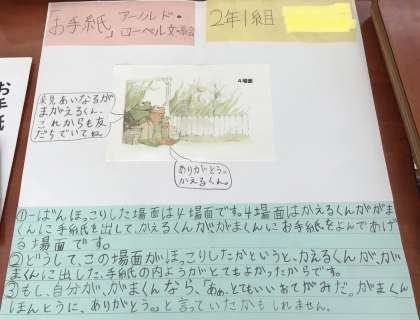 「お手紙」
アーノルド・
ローベル 文・絵
2年1組
お手紙
4場面
親
あいなるが
まがえるくん、
これからも友
だちでいてね。
ありがとう。
かえるくん。
①一ばんほっこりした場面は4場面です。4場面はかえるくんががま
くんに手紙を出して、かえるくんががまくんにお手紙をよんであげ
る場面です。
②どうして、この場面がほっこりしたかというと、かえるくんが、が
まくんに出した、手紙の内ようがとてもよかったからです。
③もし、自分が、がまくんなら、「あぁ、とてもいいおてがみだ。がまくん
ほんとうに、ありがとう。」と言っていたかもしれません。